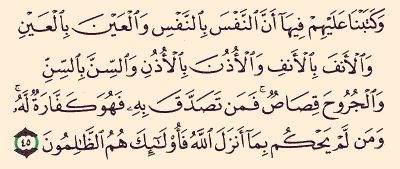 وَكَتَبْنَا عَلَيْهِمْ فِيهَآ أَنَّ ٱلنَّفْسَ بِٱلنَّفْسِ وَٱلْعَيْنَ بِٱلْعَيْنِ
وَٱلْأَنفَ بِٱلْأَنفِ وَٱلْأُذُنَ بِٱلْأُذُنِ وَٱلسِّنَّ بِٱلسِّنِّ
وَٱلْجُرُوحَ قِصَاصٌ ۚ فَمَن تَصَدَّقَ بِهِۦ فَهُوَ كَفَّارَةٌ لَّهُۥ ۚ
وَمَن لَّمْ يَحْكُم بِمَآ أَنزَلَ ٱللَّهُ فَأُو۟لَـٰٓئِكَ هُمُ ٱلظَّـٰلِمُونَ ٤٥